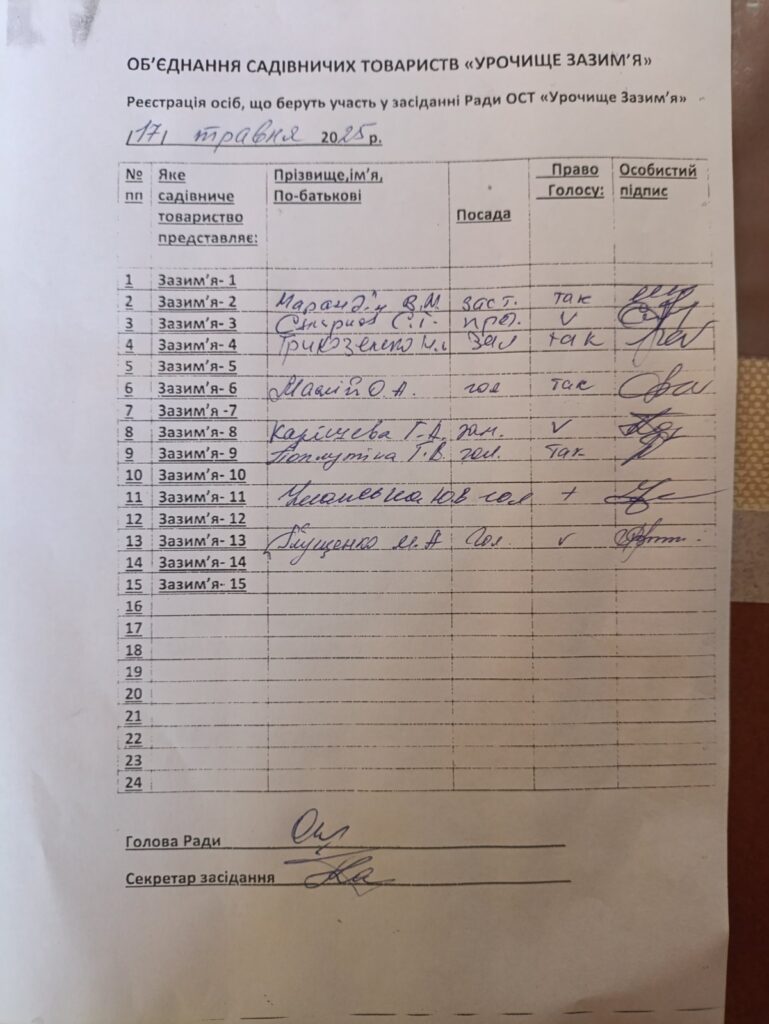 ОБ’ЄДНАННЯ САДІВНИЧИХ ТОВАРИСТВ «УРОЧИЩЕ ЗАЗИМ’Я»
Реєстрація осіб, що беруть участь у засіданні Ради ОСТ «Урочище Зазим’я»
/17/ травня 2025 р.
№ пп Яке садівниче товариство представляє: Прізвище,ім’я, По-батькові Посада Право Голосу: Особистий підпис
1 Зазим’я- 1
2 Зазим’я- 2 В.М. заст. так
3 Зазим’я- 3 С.Г. v
4 Зазим’я- 4 так
5 Зазим’я- 5
6 Зазим’я- 6 Маслій О.А. гол так
7 Зазим’я -7
8 Зазим’я- 8 v
9 Зазим’я- 9 гол. так
10 Зазим’я- 10
11 Зазим’я- 11 гол +
12 Зазим’я- 12
13 Зазим’я- 13 Глущенко М.А гол. v
14 Зазим’я- 14
15 Зазим’я- 15
16
17
18
19
20
21
22
23
24
Голова Ради
Секретар засідання